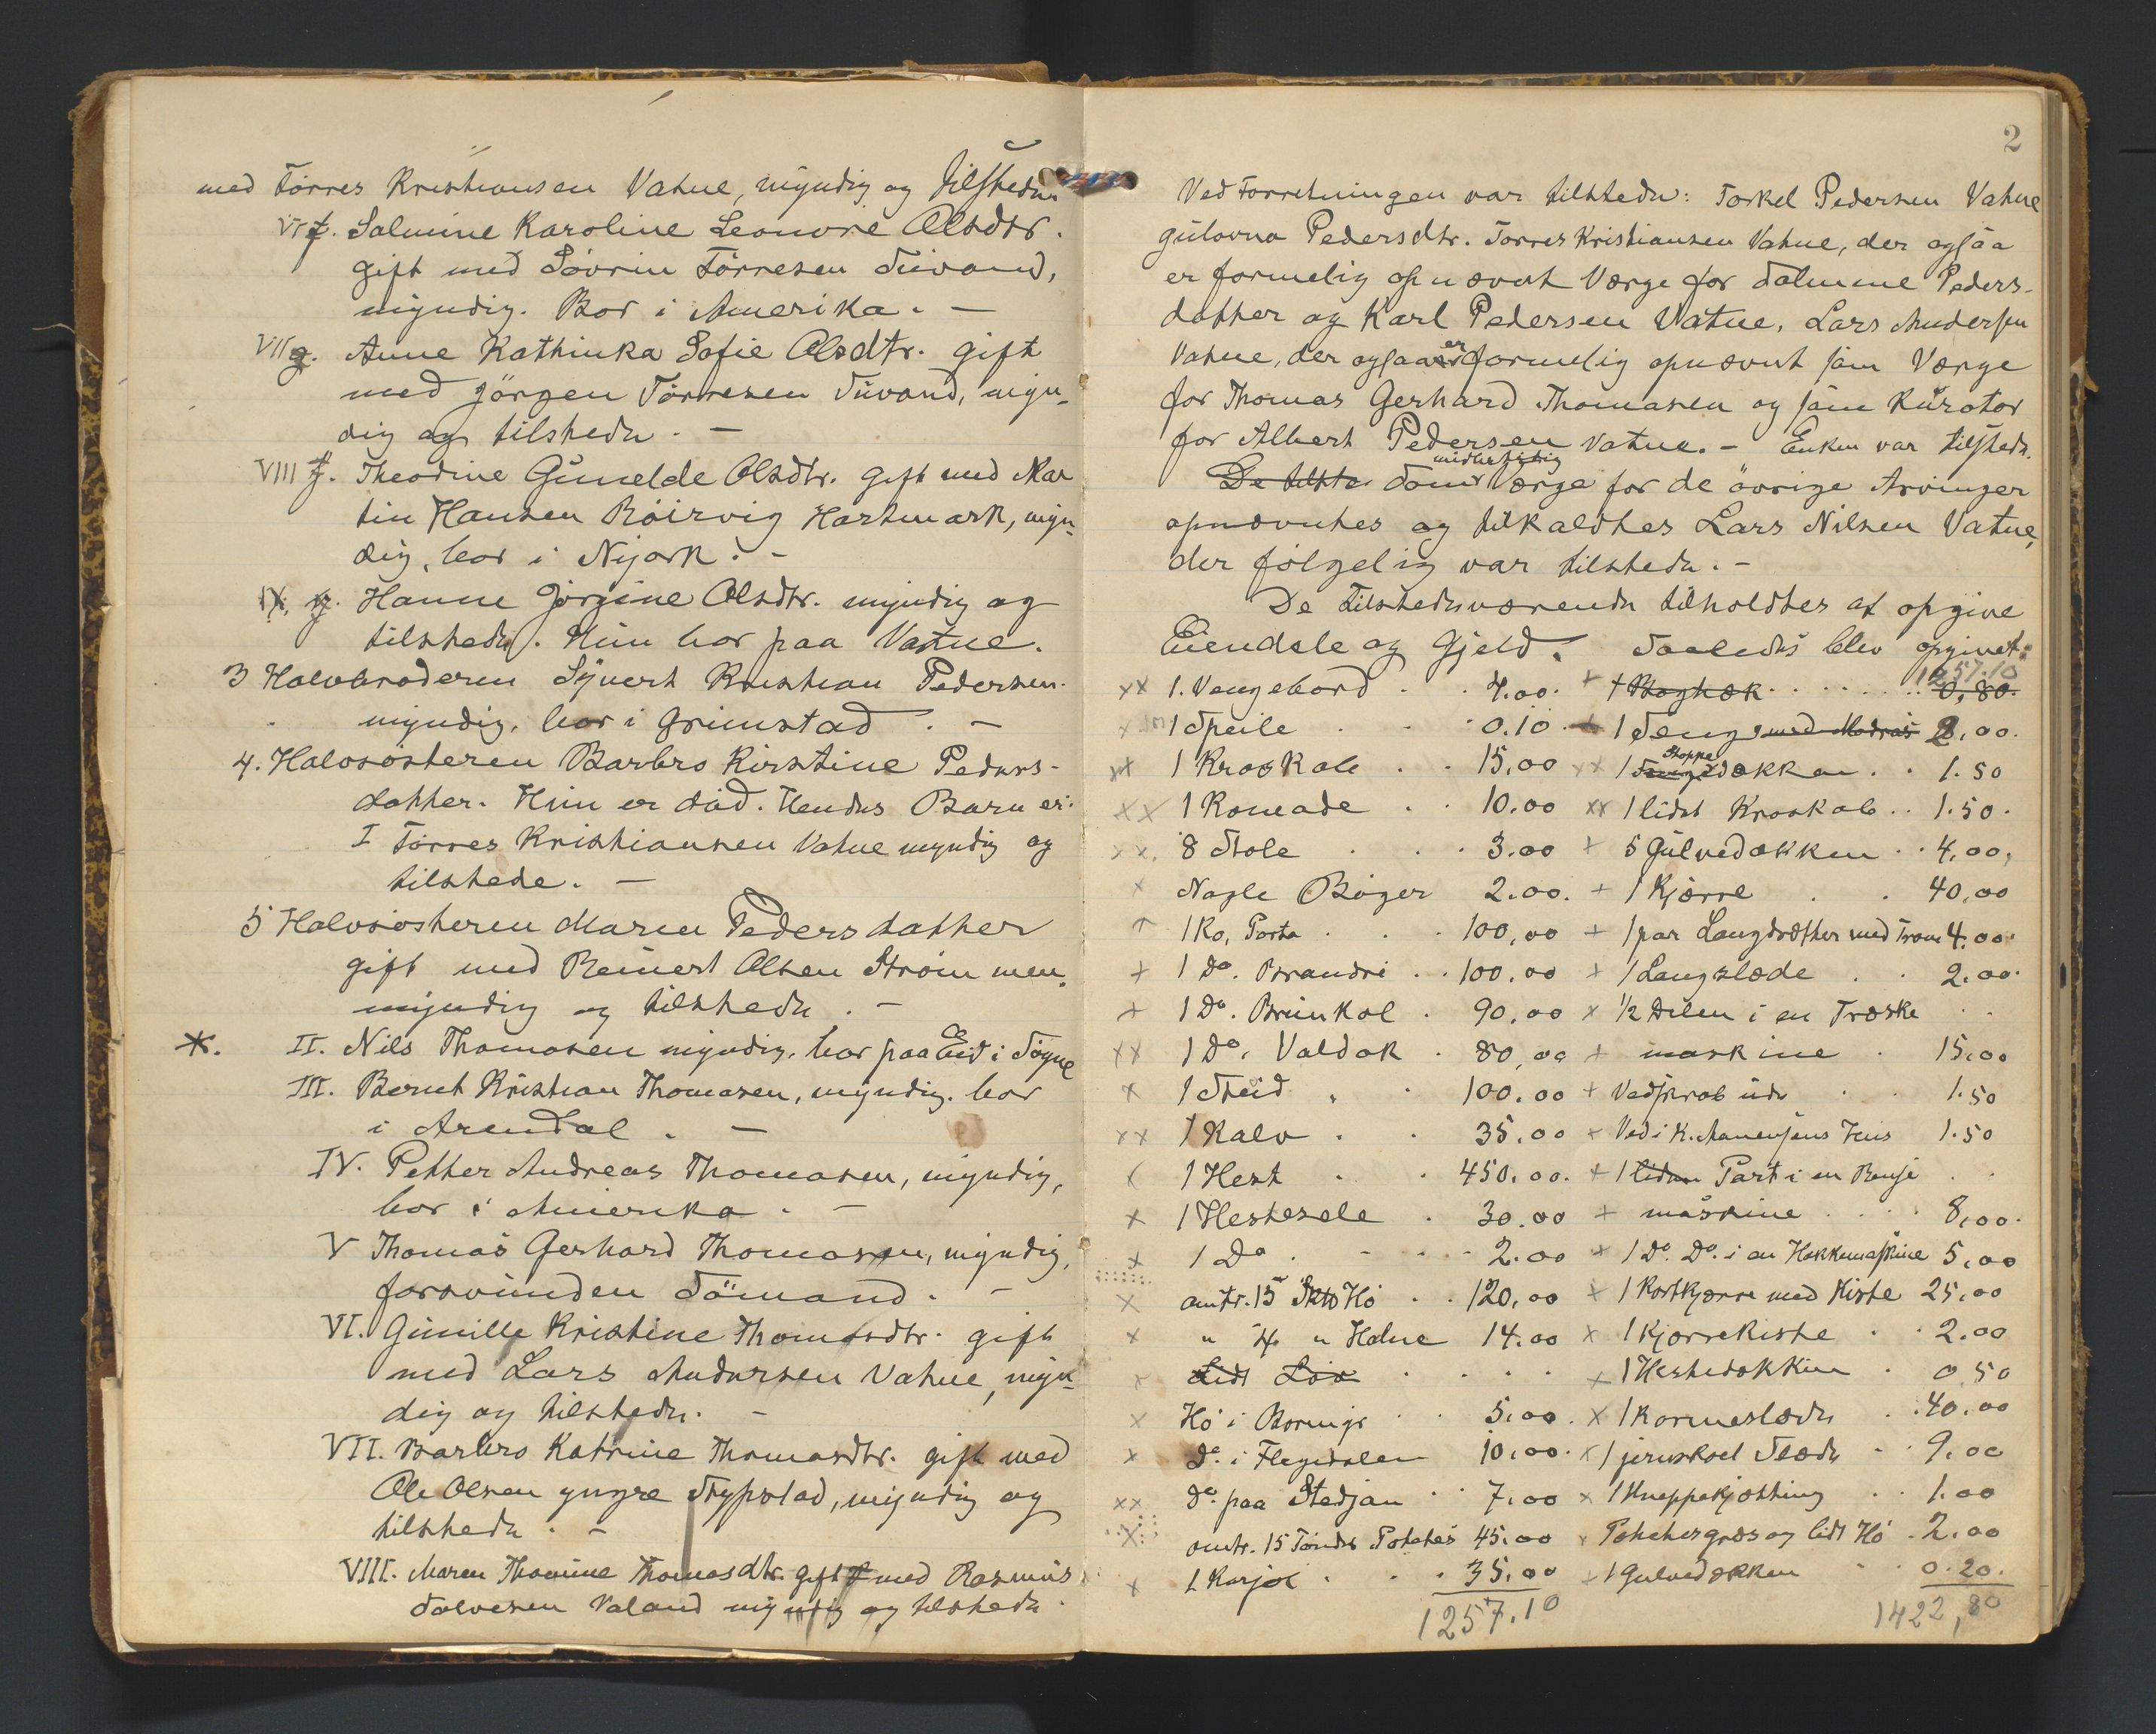 med Törres Kristiansen Vatne, myndig og tilstede.
VI f. Salmine Karoline Leonore Olsdtr.
gift med Sövrin Törresen Tuvand,
myndig. Bor i Amerika. —
VII g. Anne Kathinka Sofie Olsdtr. gift
med Jörgen Törresen Tuvand, myn-
dig og tilstede. —
VIII f. Theodine Gunelde Olsdtr. gift med Mar
tin Hansen Röirvig Hartmark, myn-
dig, bor i Nijork. -
IX. g. Hanne Jörgine Olsdtr. myndig og
tilstede. Hun bor paa Vatne.
3 Halvbroderen Syvert Kristian Pedersen.
myndig, bor i Grimstad. —
4. Halvsösteren Barbro Kirstine Peders-
datter. Hun er död. Hendes Barn er:
I Törres Kristiansen Vatne myndig og
tilstede. —
5 Halvsösteren Maren Pedersdatter
gift med Reinert Olsen Ström men,
myndig og tilstede. —
*. II. Nils Thomasen myndig, bor paa Eid i Søgne
III. Bernt Kristian Thomasen, myndig, bor
i Arendal. —
IV. Petter Andreas Thomasen, myndig,
bor i Amerika. —
V Thomas Gerhard Thomasen, myndig,
forsvunden Sömand. —
VI. Gunille Kristine Thomasdtr. gift
med Lars Andersen Vatne, myn-
dig og tilstede. -
VII. Barbro Katrine Thomasdtr. gift med
Ole Olsen yngre Stypstad, myndig og
tilstede. -
VIII. Maren Thomine Thomasdtr. gift med Rasmus
Salvesen Valand myndig og tilstede.
2
Ved Forretningen var tilstede: Torkel Pedersen Vatne
Gulovna Pedersdtr. Torres Kristiansen Vatne, der ogsaa
er formelig opnævnt Værge for Salmine Peders-
datter og Karl Pedersen Vatne, Lars Andersen
Vatne, der ogsaa er formelig opnævnt som Værge
for Thomas Gerhard Thomasen og som Kurator
for Albert Pedersen Vatne. - Enken var tilstede.
De tilste Som midlertidig Værge for de övrige Arvinger
opnævntes og tilkaldtes Lars Nilsen Vatne,
der fölgelig var tilstede. -
De tilstedeværende tilholdtes at opgive
Eiendele og Gjeld. Saaledes blev opgivet:
1257.10
xx 1. Vengebord . . 4.00. + 1 Baghæk . . . 0,80.
x 1 Speile . . 0.10 + 1 Seng med Madras 2,00.
xx 1 Kroskab . . 15,00 xx 1 Stoppedækken . . 1.50
xx 1 Komade . . 10.00 xx 1 lidet Kroskab . . 1.50.
xx. 8 Stole . . 3.00 + 5 Gulvedækken . . 4,00,
x Nogle Böger 2.00. + 1 Kjærre . . 40,00
1 Ko, Porta . . 100,00 + 1 par Langdrætter med Trom 4.00
+ 1 Do. Brandri . . 100.00 + 1 Langslæde . . 2.00.
+ 1 Do. Brunkol . 90,00 x 1/2 Delen i en Træske
xx 1 Do. Valdok . 80,00 + maskine . 15,00
x 1 Stud . . 100.00 + Vedskrab ude . . 1.50
xx 1 Kalv . . 35.00 + Ved i K. Mauensens Hus 1.50
1 Hest . . 450.00. + 1 liden Part i en Rense
x 1 Hestesele . 30.00 + maskine . . . 8,00.
x 1 Do . . . 2.00 + 1 Do. Do. i en Hakkemaskine 5,00
x omtr. 15 Skto Hö . . 120,00 + 1 Kostkjærre med Kiste 25,00
x " 4 " Halm 14.00 x 1 Kjærrekiste . . 2.00
x Lidt Löv . . . . x 1 Hestedækken . 0.50
x Hö i Boringe . . 5,00. x 1 Karmeslæde . 40.00
x Do. i Flegedalen 10,00. x 1 jernskoet Slæde . . 9.00
xx Do. paa Stedjan . . 7,00 x 1 Kneppekjætting . . 1.00
x omtr. 15 Tönder Potetes 45.00 x Potetesgræs og lidt Hö . 2.00
x 1 Karjol . . . 35,00 + 1 Gulvedækken . . 0.20.
1257.10 1422,80